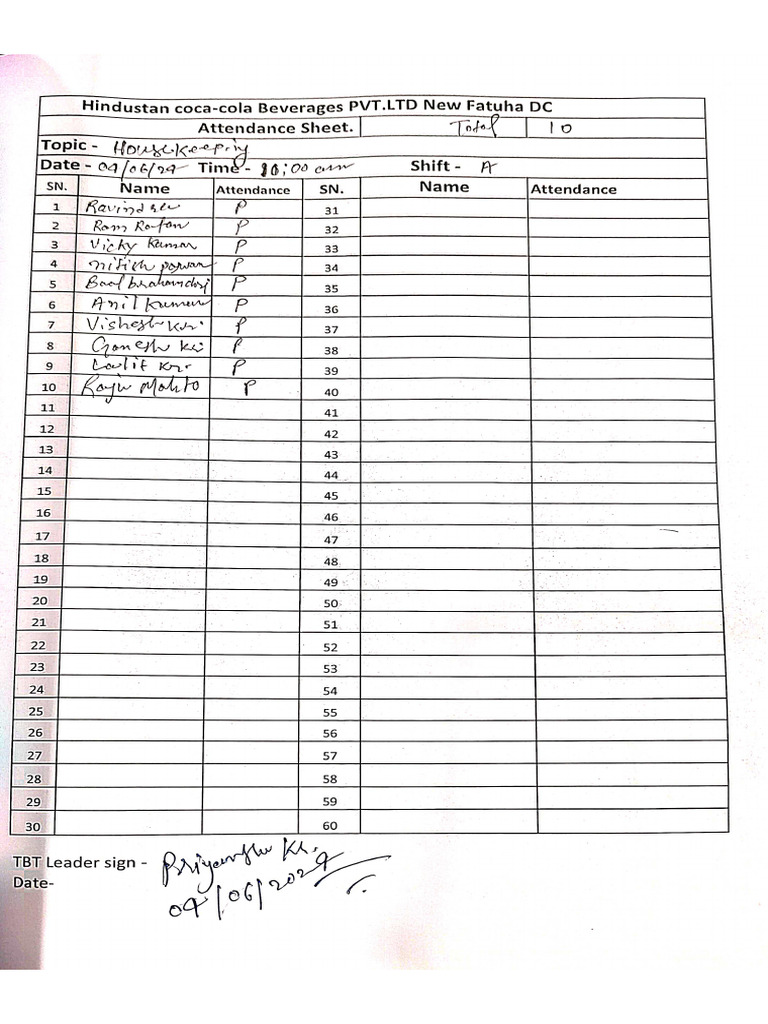 Hindustan coca-cola Beverages PVT.LTD New Fatuha DC
Attendance Sheet. Total 10
Topic - Housekeeping
Date - 04/06/24 Time - 10:00 am Shift - A
SN. Name Attendance SN. Name Attendance
1 P 31
2 Ram Ratan P 32
3 Vicky Kumar P 33
4 nitish paswan P 34
5 P 35
6 Anil Kumar P 36
7 Vishesh Kr. P 37
8 Ganesh Kr P 38
9 Lalit Kr. P 39
10 Raju Mahto P 40
11 41
12 42
13 43
14 44
15 45
16 46
17 47
18 48
19 49
20 50
21 51
22 52
23 53
24 54
25 55
26 56
27 57
28 58
29 59
30 60
TBT Leader sign - Priyanshu Kr.
Date- 04/06/2024